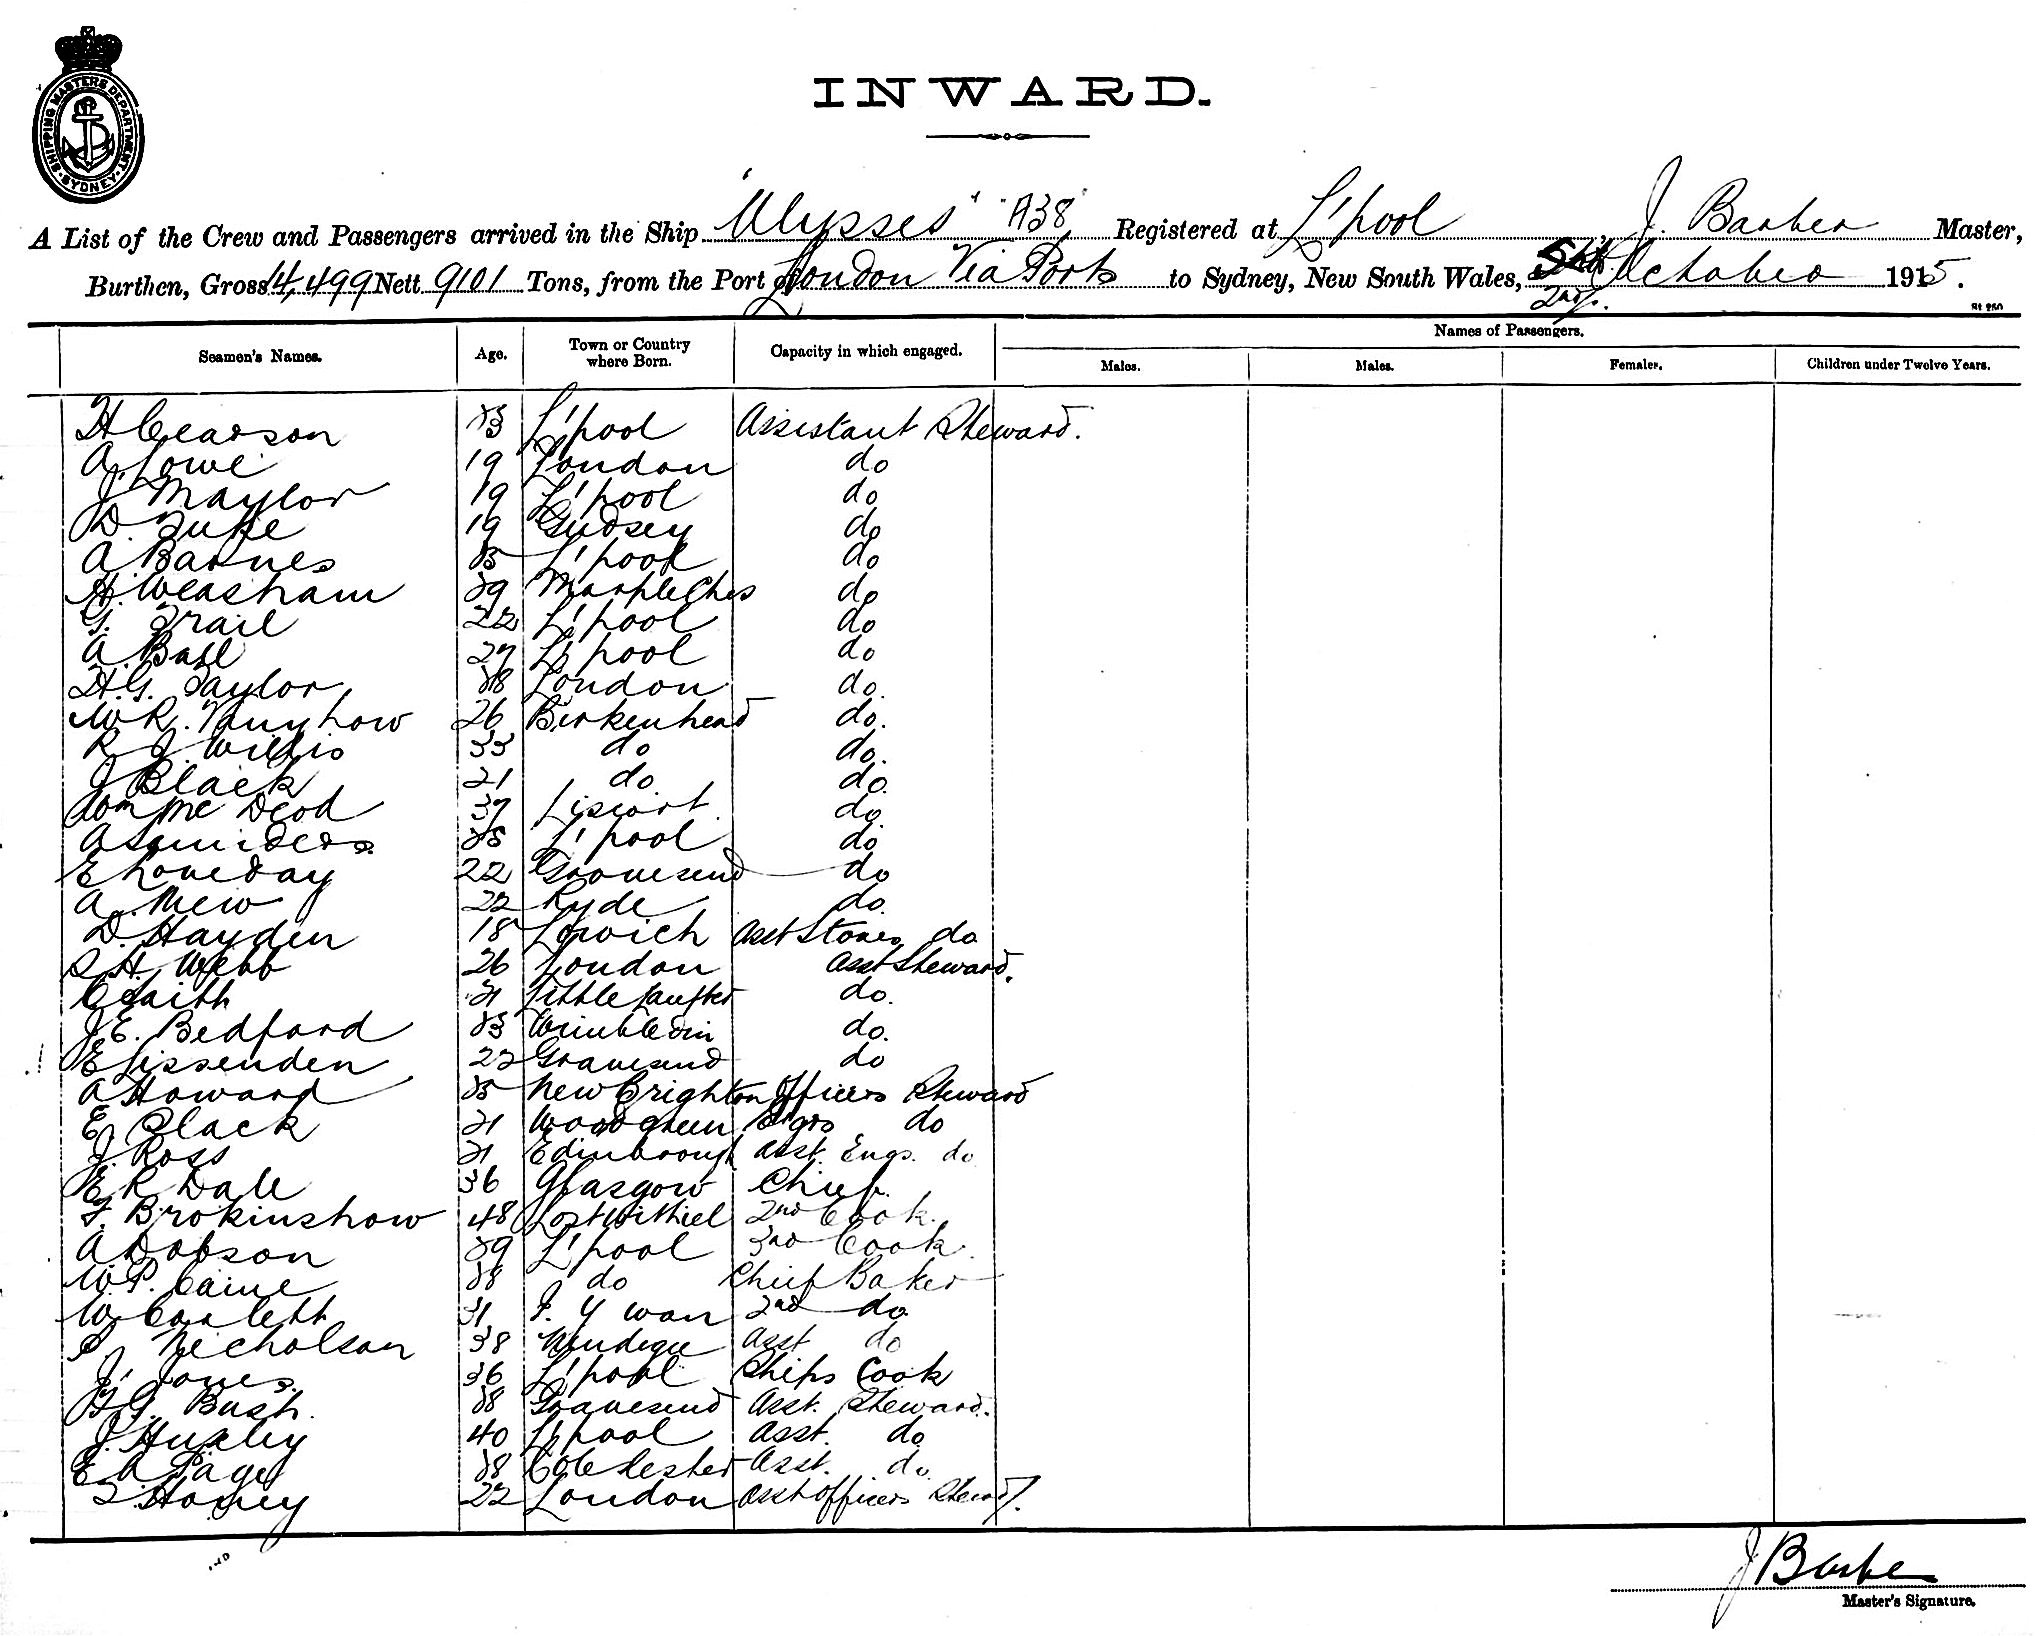 SHIPPING MASTERS DEPARTMENT SYDNEY
INWARD.
A List of the Crew and Passengers arrived in the Ship "Ulysses" "A38" Registered at L'pool, J. Barber Master,
Burthen, Gross 14,499 Nett 9101 Tons, from the Port of London Via Ports to Sydney, New South Wales, 2nd October 1915.
Names of Passengers.
Seamen's Names. Age. Town or Country where Born. Capacity in which engaged. Males. Males. Females. Children under Twelve Years.
H Pearson L'pool Assistant Steward.
A. Lowe 19 London do
J. Maylor 19 L'pool do
D. Duke 19 do
A Barnes L'pool do
H. Weasham Marple Ches do
G. Trail 22 L'pool do
A. Ball 27 L'pool do
H.G. Taylor London do.
W R. 26 Birkenhead do.
R J. Willis 33 do do.
J Black 21 do do
Wm Mc Deod 37 Liscart do
A L'pool do
E Loveday 22 Gravesend do
A. Mew 22 Ryde do.
D. Hayden 18 Asst Stores do
S H. Webb 26 London Asst Steward.
C Faith 21 Little do.
J.E. Bedford do.
E Lissenden 22 Gravesend do
A Howard New Brighton Officers Steward
E. Black 21 Wood Green Engrs do
J. Ross 21 Edinborough Asst. Engs. do
E R Dale 36 Glasgow Chief.
F. Brokinshow 48 Lostwithiel 2nd Cook.
A Dobson L'pool 3rd Cook.
W.P. Caine do Chief Baker
W. Corlett 31 2nd do
P. Nicholson 38 Asst do
J. Jones. 36 L'pool Ships Cook
G. Bush. Gravesend Asst. Steward.
J. Huxley 40 L'pool Asst. do
E A Page Colchester Asst. do.
Honey 22 London Asst officers Steward.
J Barber
Master's Signature.